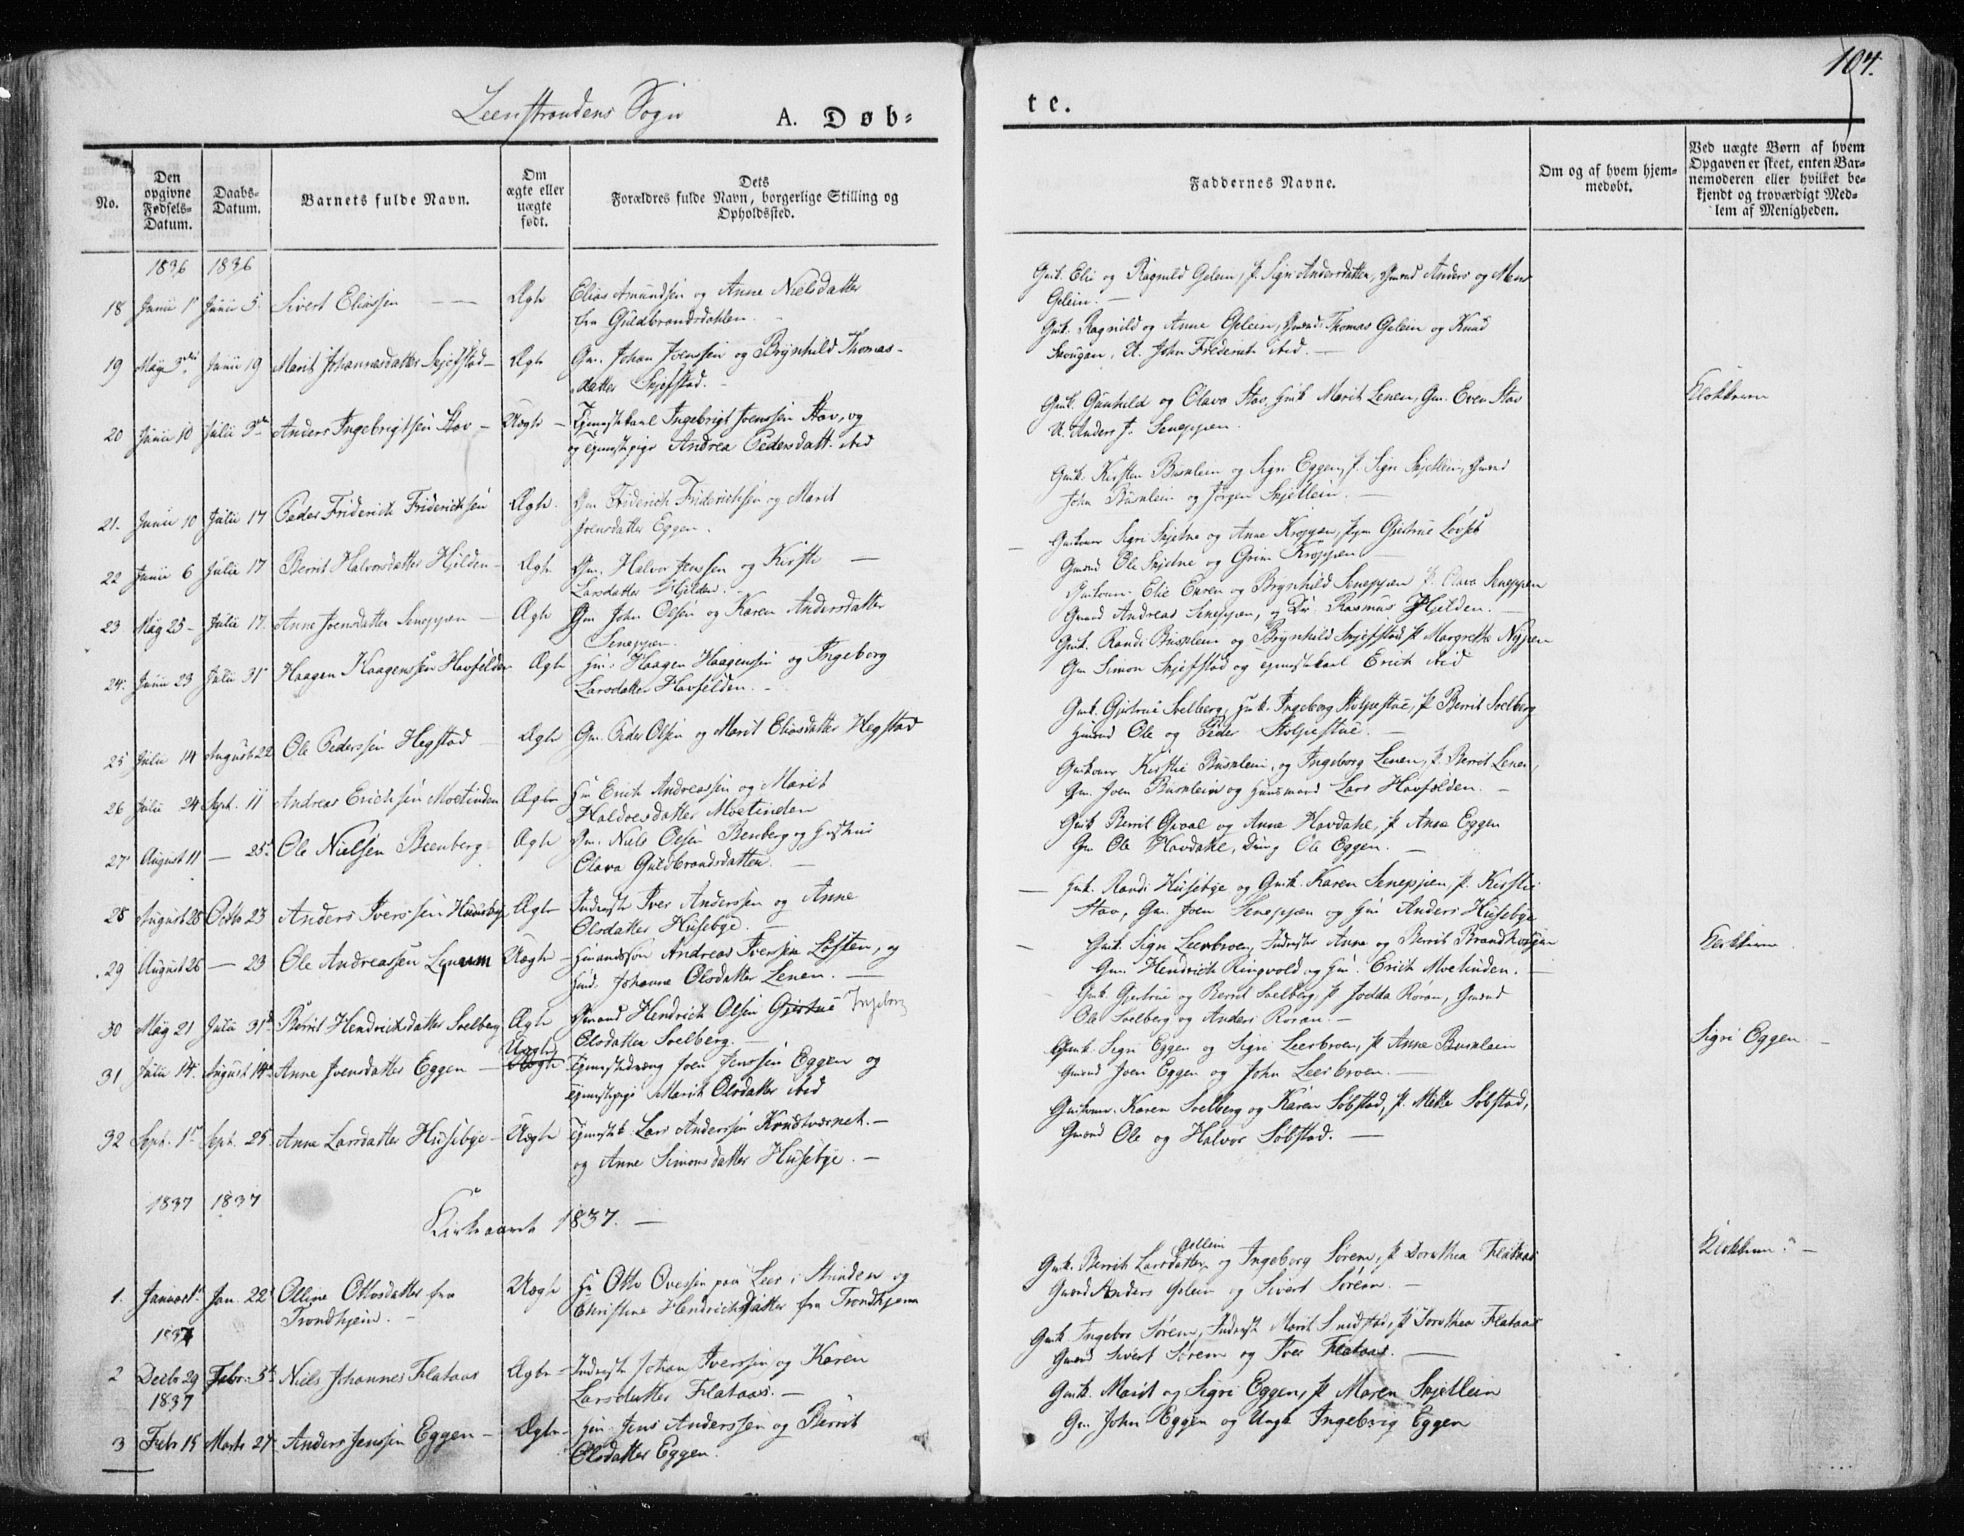 104.
Leenstrandens Sogn
A. Døb-
te.
No.
Den opgivne Fødsels-Datum.
Daabs-Datum.
Barnets fulde Navn.
Om ægte eller uægte født.
Dets Forældres fulde Navn, borgerlige Stilling og Opholdssted.
Faddernes Navne.
Om og af hvem hjemmedøbt.
Ved uægte Børn af hvem Opgaven er skeet, enten Barnemoderen eller hvilket bekjendt og troværdigt Medlem af Menigheden.
1836 1836
18 Junii 1 Junii 5. Sivert Eliassen Ægte Elias Amundsen og Anne Nielsdatter
fra Guldbrandsdahlen.
Gmk. Elie og Ragnild Gelein, P. Sigri Andersdatter, Gmand Anders og Mons
Gelein.
19 May Junii 19 Marit Johannesdatter Skjefstad Ægte Gm. Johan Joenssen og Brynhild Thomas-
datter Skjefstad.
Gmk. Ragnild og Anne Gelein, Gmand Thomas Gelein og Knud
Skougan, U. John Frederich ibid.
20 Junii 10 Julii 3 Anders Ingebrigtsen Stav Uægte Tjenestekarl Ingebrigt Joenssen Stav, og
og tjenestepige Andrea Pedersdatt. ibid
Gmk. Gunhild og Olava Stav, Hmk Marit Lenen, Gm. Even Stav
U. Anders J. Seneppen.
Klokkeren
21. Junii 10 Julii 17 Peder Friderich Friderichsen Ægte Gm Friderich Friderichsen og Marit
Joensdatter Eggen.
Gmk. Kirsten Busklein og Sigri Eggen, P. Sigri Skjetlein, Gmand
John Busklein og Jørgen Skjetlein.
22 Junii 6 Julii 17 Berrit Halvorsdatter Hjelden Ægte Gm. Halvor Jenssen og Kirsti
Larsdatter Hjelden.
Gmkoner Sigri Skjetne og Anne Kroppen, Pigen Gjertrue Løvset
Gmand Ole Skjetne og Grim Kroppen
23 May 25 Julii 17. Anne Joensdatter Seneppen Ægte Gm John Olsen og Karen Andersdatter
Seneppen.
Gmkoner Elie Enren og Brynhild Seneppen P. Olava Seneppen
Gmand Andreas Seneppen, og Dr. Rasmus Hjelden.
24. Junii 23 Julii 31 Haagen Haagenssen Havfelden Ægte Hm. Haagen Haagenssen og Ingeborg
Larsdatter Havfelden.
Gmk. Randi Busklein og Brynhild Skjefstad P. Margrethe Nypen
Gm Simon Skjefstad og tjenestekarl Erich ibid
25 Julii 14 August 22 Ole Pederssen Hegstad Ægte Gm. Peder Olsen og Marit Eliasdatter Hegstad
Gmk. Gjertrue Svelberg, Hmk. Ingeborg Stolpestue, P Berrit Svelberg
Hmand Ole og Peder Stolpestue.
26 Julii 24 Sept. 11 Andreas Erichsen Moetinden Ægte Hm Erich Andreassen og Marit
Haldoesdatter Moetinden
Gmkoner Kirstie Busklein, og Ingeborg Lenen, P. Berrit Lenen,
Gm. Joen Busklein og Huusmand Lars Havfolden.
27 August 11 — 25 Ole Nielsen Beenberg Ægte Gm. Niels Olsen Benberg og Hustrue
Olava Guldbrandsdatter.
Gmk Berrit Qvaal og Anne Havdahl, P. Anne Eggen
Gm Ole Havdahl, Dreng Ole Eggen.
28 August 28 Octbr 23 Anders Iverssen Huusebye Ægte Inderste Iver Anderssen og Anne
Olsdatter Husebye.
Hmk. Randi Husebye og Gmk. Karen Seneppen, P. Kirstie
Stav, Gm. Joen Seneppen og Hm Anders Husebye
29 August 26 — 23 Ole Andreasen Lenum Uægte Hmandssøn Andreas Iverssen Løften, og
Johanne Olsdatter Lenen.
Gmk. Sigri Leerbroen, Inderster Anne og Berrit Brandhougen
Gm. Hendrich Ringvold og Hm. Erich Moetinden.
Klokkeren
30 May 21 Julii 31 Berrit Hendrichsdatter Svelberg Ægte Gmand Hendrich Olsen Gjertrue Ingeborg
Olsdatter Svelberg.
Gmk. Gjertrue og Berrit Svelberg, P Jodda Roran, Gmand
Ole Svelberg og Anders Roran.
31 Julii 14. August 14 Anne Joensdatter Eggen Uægte Ægte Tjenestedreng Joen Jenssen Eggen og
tjenestepige Marit Olsdatter ibid
Gmk. Sigri Eggen og Sigri Leerbroen, P Anne Busklein
Gmand Joen Eggen og John Leerbroen.
Sigri Eggen.
32 Sept. 1 Sept. 25. Anne Larsdatter Husebye Uægte Tjenestek. Lars Anderssen Krudtværnet.
og Anne Simonsdatter Husebye.
Gmkoner. Karen Svelberg og Karen Søbstad, P. Mette Søbstad,
Gmand Ole og Halvor Søbstad.
1837 1837
Kirkeaaret 1837.
1. Januar 1 Jan. 22 Olline Ottosdatter fra
Trondhjem. Uægte Hr Otto Ovessen paa Leer i Strinden og
Christine Hendrichsdatter fra Trondhjem
Gmk. Berrit Larsdatter Gellein og Ingeborg Sørem, P Dorothea Flataas
Gmand Anders Gelein og Sivert Sørem.
Klokkeren
1837
2 Decbr 29 Febr. 5 Niels Johannes Flataas Ægte Inderste Johan Iverssen og Karen
Larsdatter Flataas.
Gmk. Ingebor Sørem, Inderst. Marit Sundstad, P Dorothea Flataas
Gmand Sivert Sørem og Iver Flataas.
1837
3 Febr 15 Marts 27 Anders Jenssen Eggen Ægte Hm. Jens Anderssen og Berrit
Olsdatter Eggen.
Gmk. Marit og Sigri Eggen, P Maren Skjetlein
Gm. John Eggen og Ungk Ingebrig Eggen